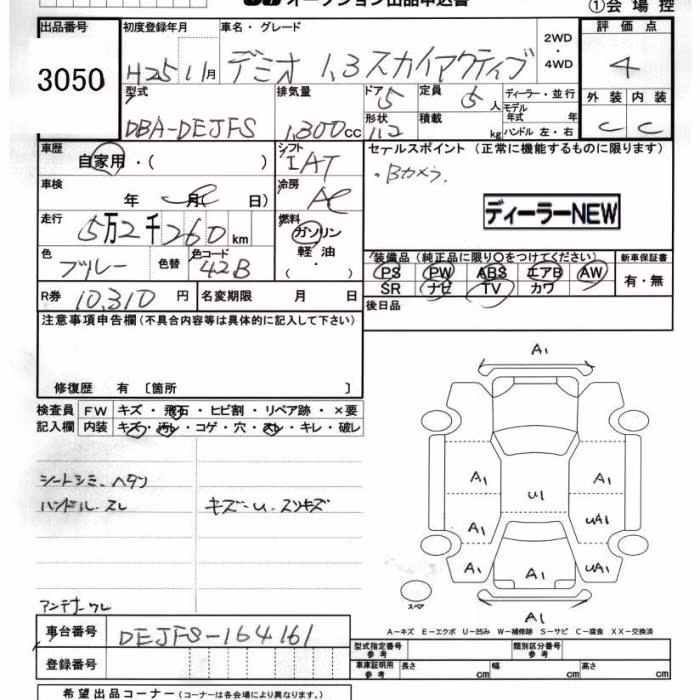 オークション出品申込書
①会場控
出品番号
3050
初度登録年月
H25 11月
車名・グレード
デミオ 1.3スカイアクティブ
2WD
・
4WD
評価点
4
外装 内装
C C
型式
DBA-DEJFS
排気量
1,300cc
ドア 5
形状 112
定員 5人
積載 kg
ディーラー・並行
モデル年式 年
ハンドル 左・右
車歴
自家用・( )
シフト
IAT
車検
年 月 日)
冷房
AC
セールスポイント (正常に機能するものに限ります)
・Bカメラ.
ディーラーNEW
走行
5万2千260km
燃料
ガソリン
軽油
( ・ )
色
ブルー
色替
色コード
42B
装備品 (純正品に限り○をつけてください)
PS PW ABS エアB AW
SR ナビ TV カワ
新車保証書
有・無
R券 10,310円
名変期限 月 日
後日品
注意事項申告欄 (不具合内容等は具体的に記入して下さい)
修復歴 有 〔箇所 〕
検査員 FW キズ・飛石・ヒビ割・リペア跡・×要
記入欄 内装 キズ・汚レ・コゲ・穴・スレ・キレ・破レ
シートシミ、ヘタリ
ハンドル.スレ
キズ-U.スリキズ
アンテナ.クレ
A1
A1
U1
A1
A1
UA1
A1
A1
UA1
スペア
A1
A-キズ E-エクボ U-凹み W-補修跡 S-サビ C-腐食 XX-交換済
車台番号 DEJFS-164161
登録番号
型式指定番号 参考
類別区分番号 参考
車庫証明用 参考
長さ cm
幅 cm
高さ cm
希望出品コーナー (コーナーは各会場により異なります。)